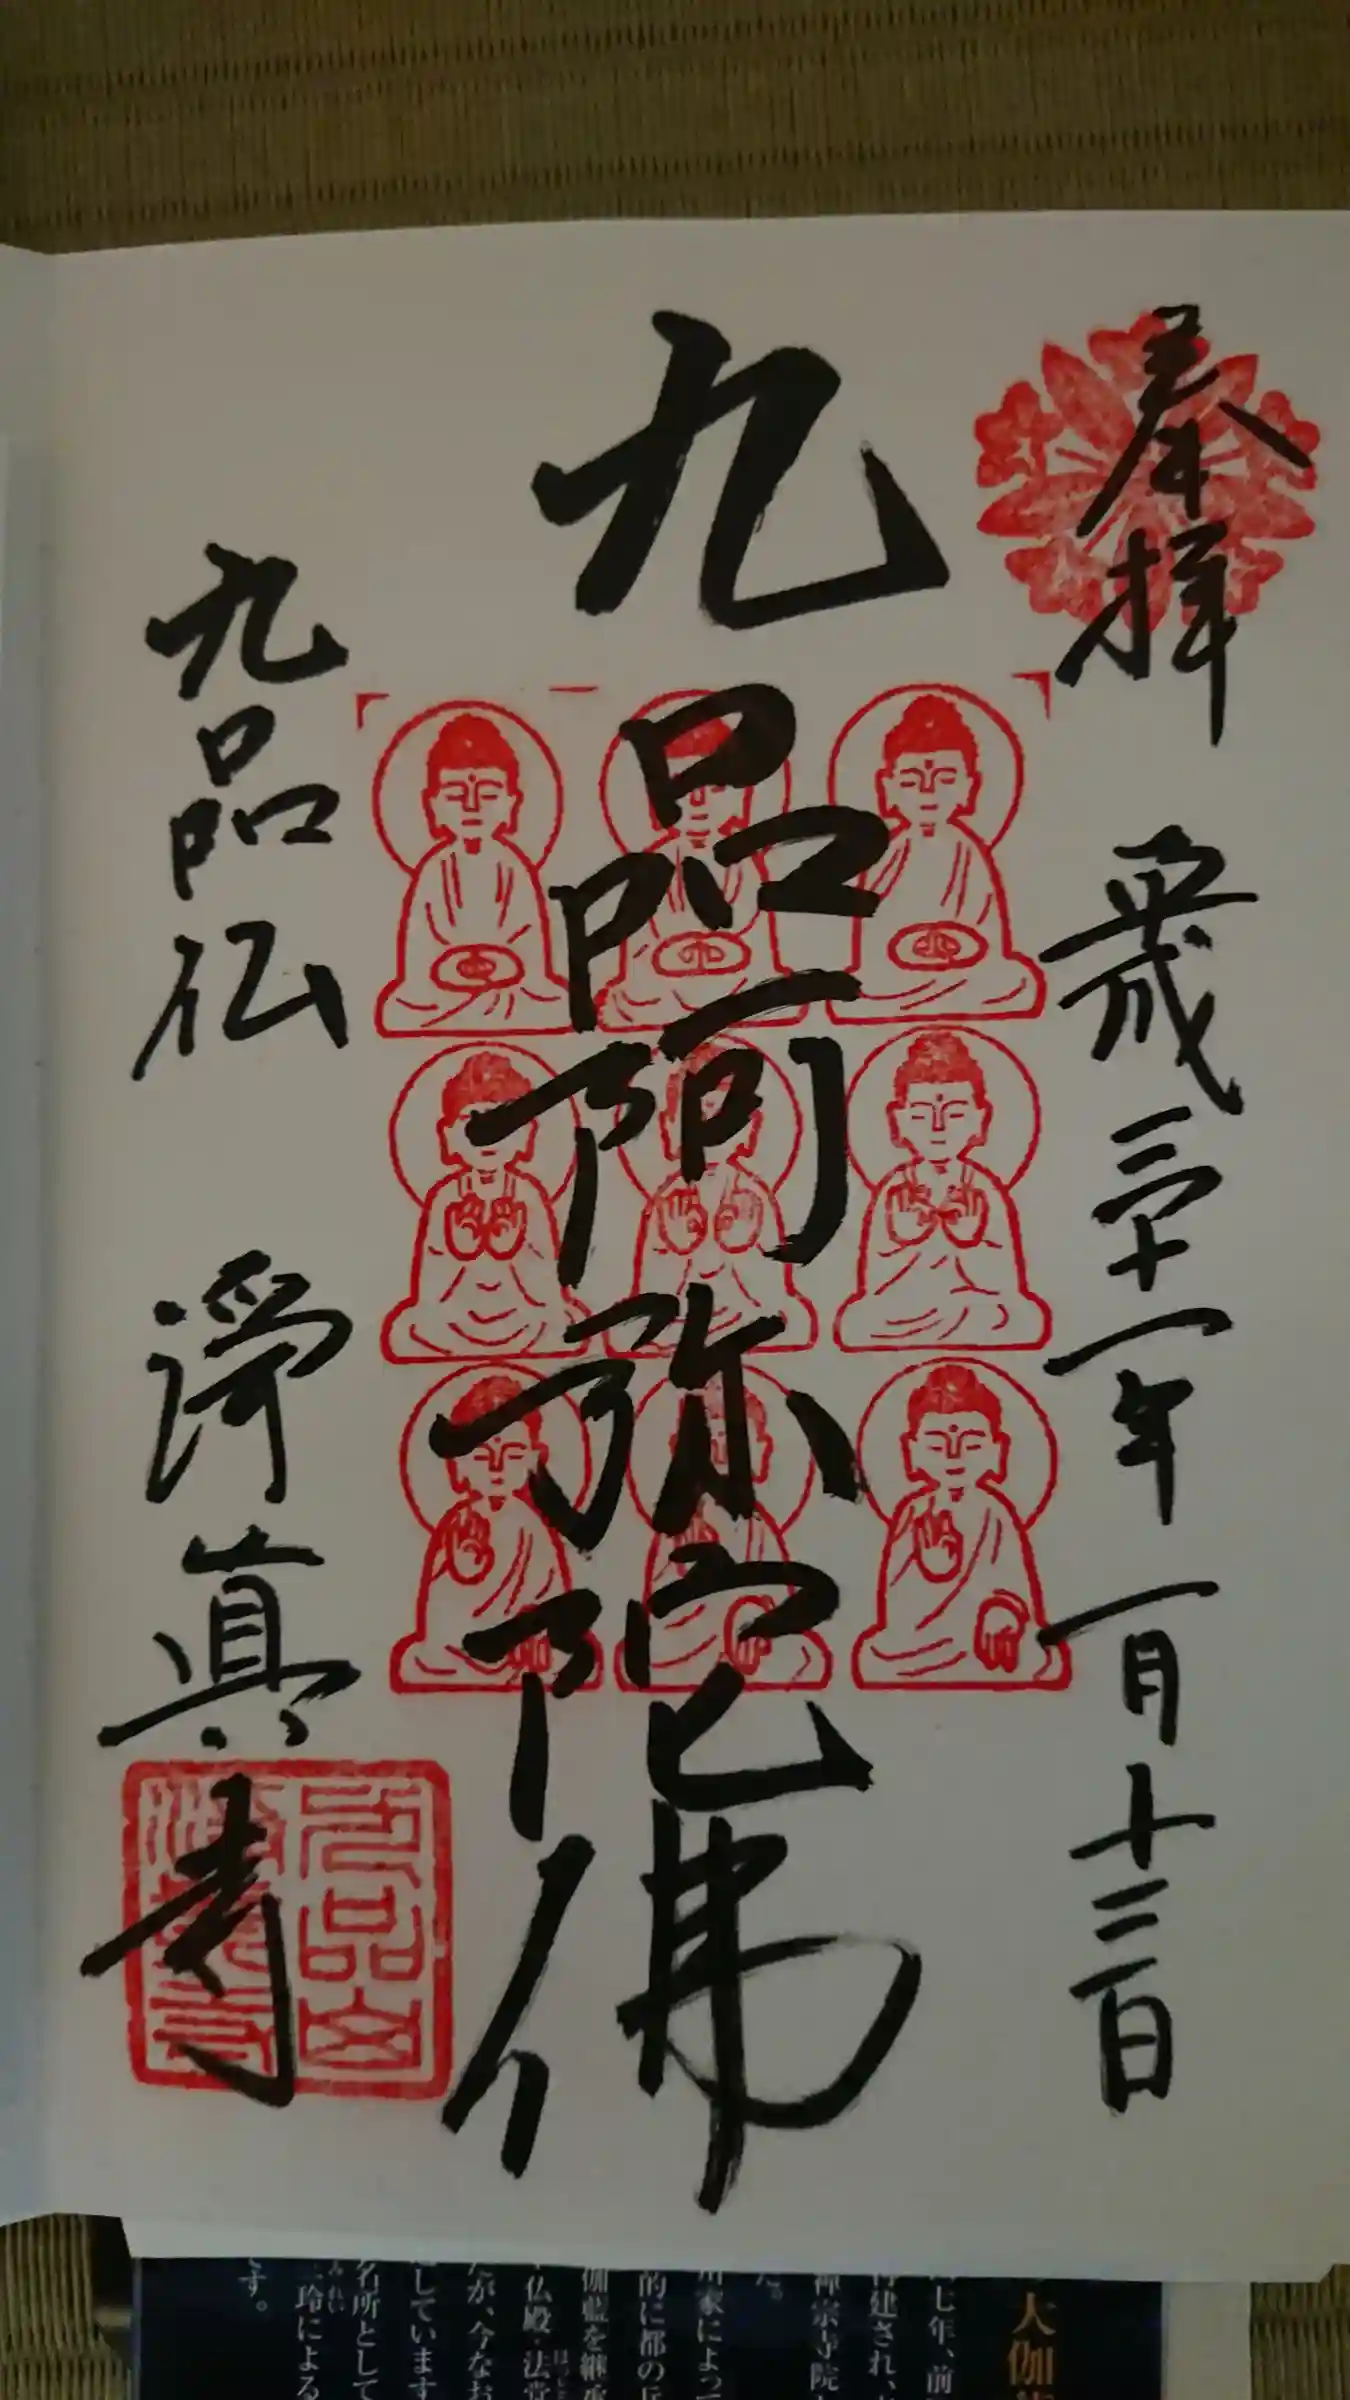 奉拝 平成三十一年一月十三日
九品阿弥陀佛
九品仏 淨真寺
九品山
淨真寺
大伽
七年、前
再建され、
禅宗寺院
た。
川家によって
的に都の
伽藍を継承
仏殿・法堂
たが、今なお
しています
名所として
玲による
です。